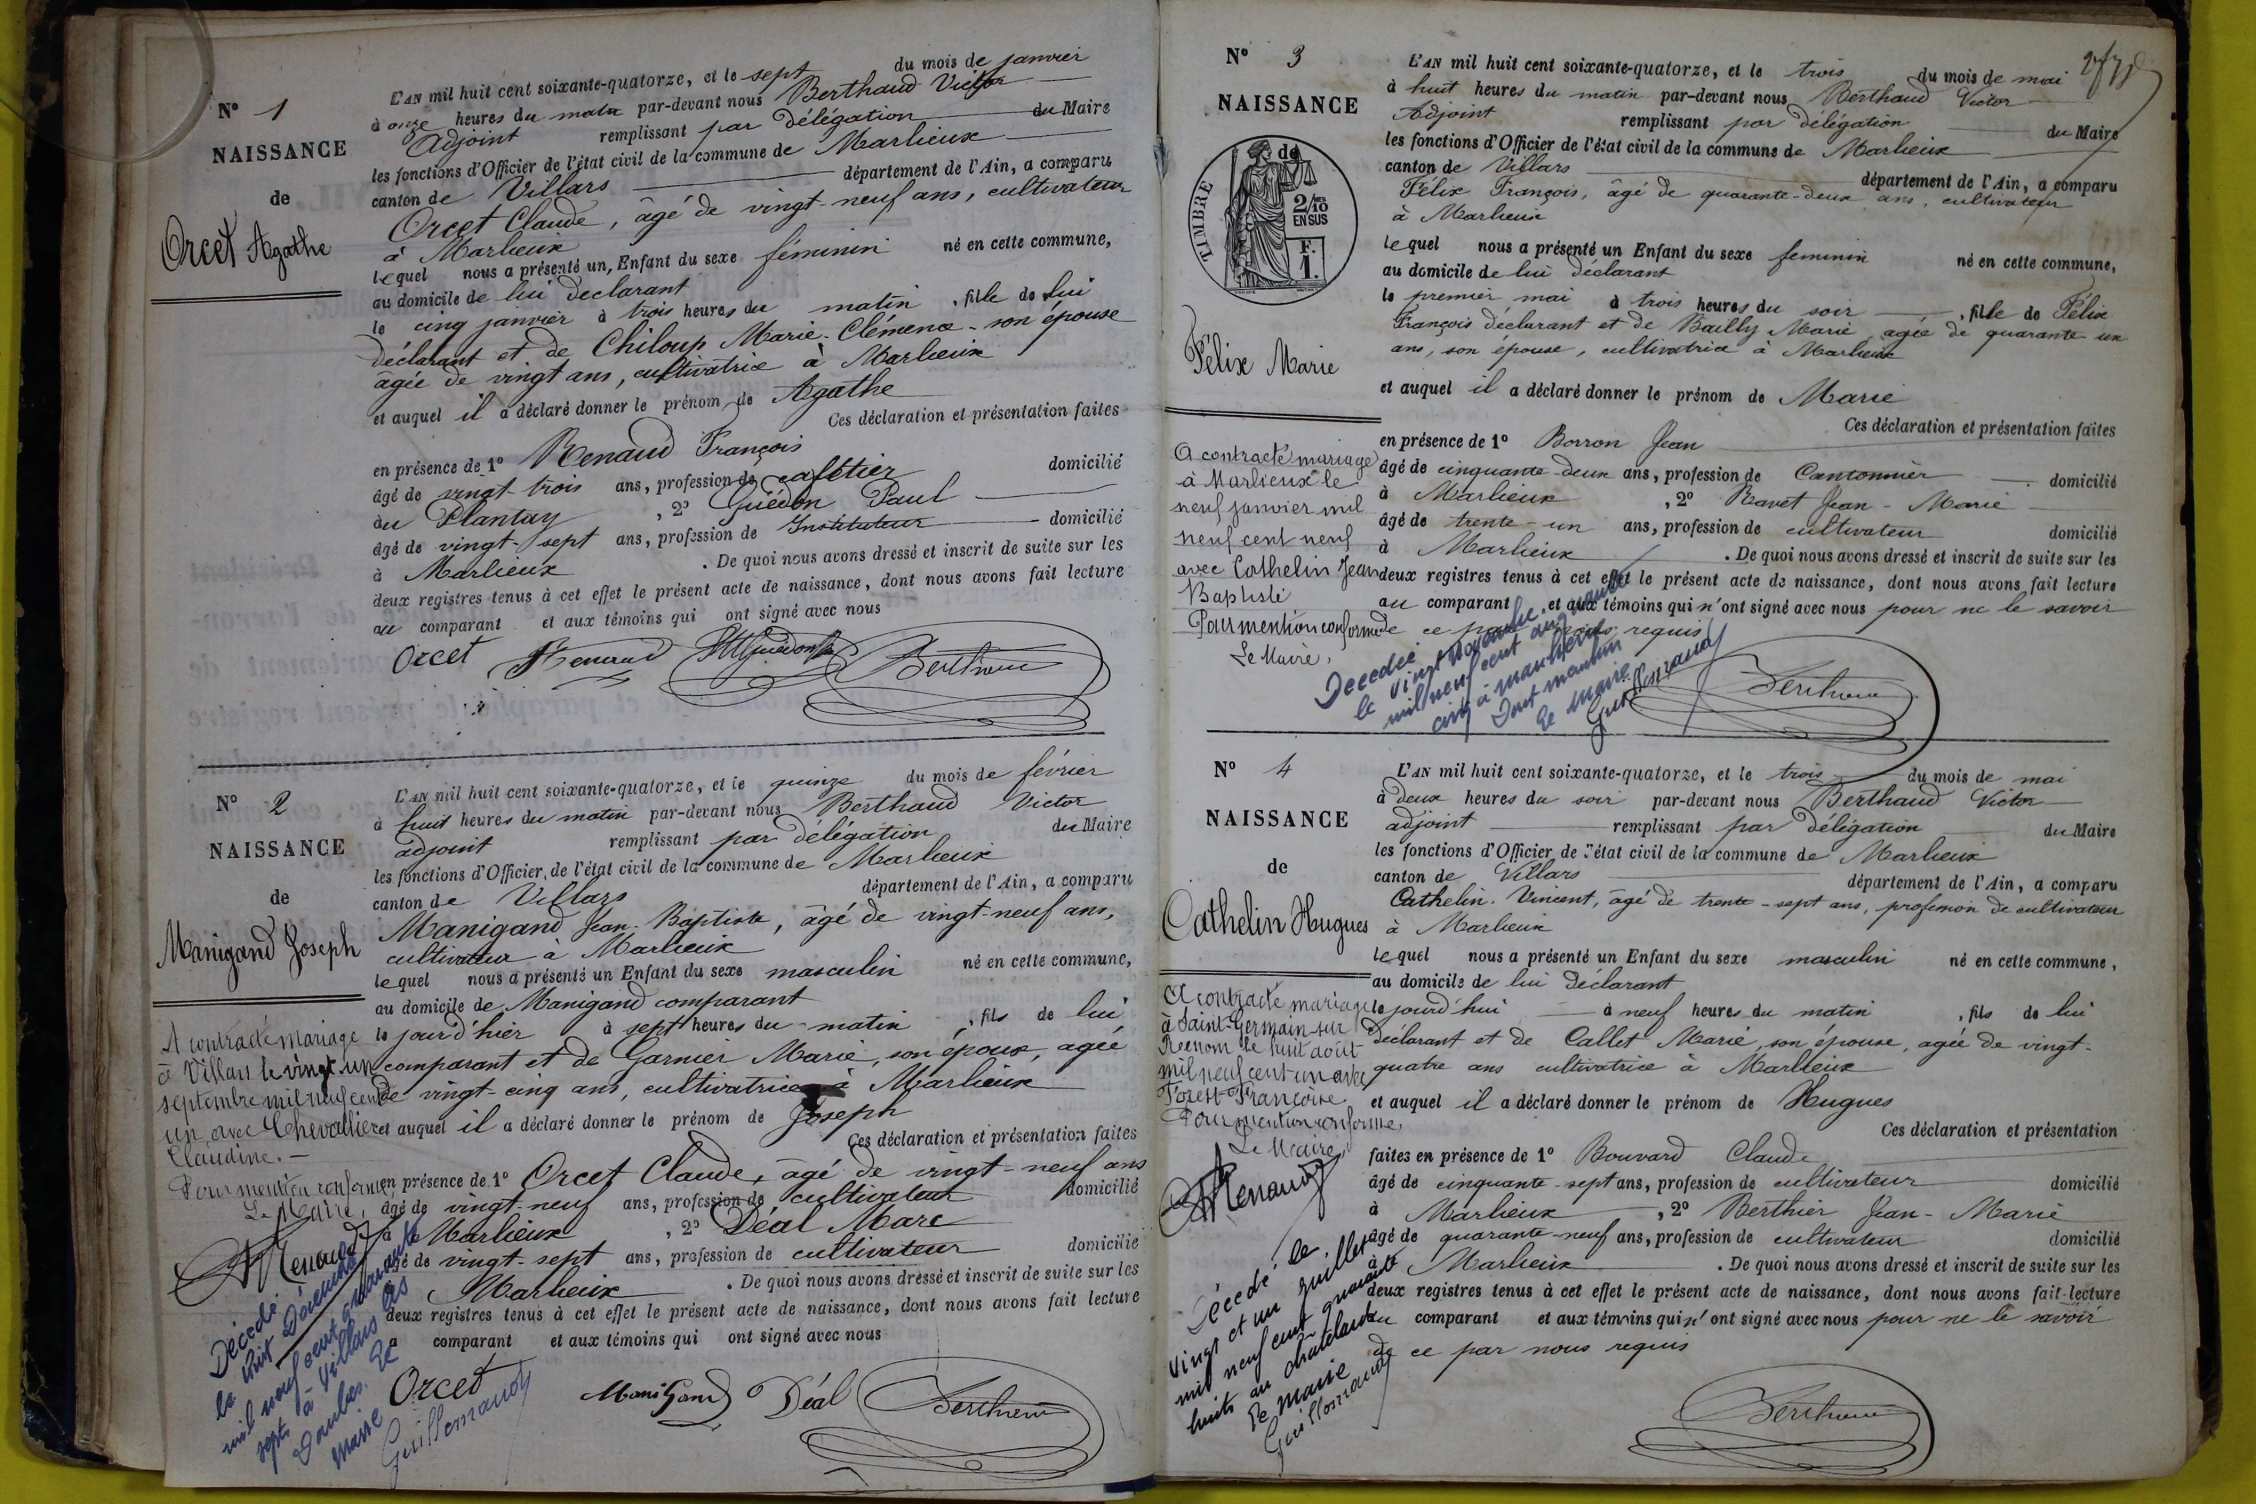 N° 1
NAISSANCE
de
Orcet Agathe
L'AN mil huit cent soixante-quatorze, et le sept du mois de janvier
à onze heures du matin par-devant nous Berthaud Victor
Adjoint remplissant par délégation du Maire
les fonctions d'Officier de l'état civil de la commune de Marlieux
canton de Villars département de l'Ain, a comparu
Orcet Claude, âgé de vingt-neuf ans, cultivateur
à Marlieux
lequel nous a présenté un Enfant du sexe féminin né en cette commune,
au domicile de lui déclarant
le cinq janvier à trois heures du matin, fille de lui
déclarant et de Chiloup Marie-Clémence son épouse
âgée de vingt ans, cultivatrice à Marlieux
et auquel il a déclaré donner le prénom de Agathe
Ces déclaration et présentation faites
en présence de 1° Renaud François
âgé de vingt-trois ans, profession de cafetier domicilié
au Plantay, 2° Guédon Paul
âgé de vingt-sept ans, profession de Instituteur domicilié
à Marlieux. De quoi nous avons dressé et inscrit de suite sur les
deux registres tenus à cet effet le présent acte de naissance, dont nous avons fait lecture
au comparant et aux témoins qui ont signé avec nous
Orcet Renaud Guédon Berthaud
N° 2
NAISSANCE
de
Manigand Joseph
A contracté mariage
à Villars le vingt un
septembre mil neuf cent
un avec Chevallier
Claudine.
Pour mention conforme,
Le Maire,
Renaud
Décédé
le huit Décembre
mil neuf cent quarante
sept à Villars les
Dombes. Le
Maire
Guillemaud
L'AN mil huit cent soixante-quatorze, et le quinze du mois de février
à huit heures du matin par-devant nous Berthaud Victor
adjoint remplissant par délégation du Maire
les fonctions d'Officier de l'état civil de la commune de Marlieux
canton de Villars département de l'Ain, a comparu
Manigand Jean-Baptiste, âgé de vingt-neuf ans,
cultivateur à Marlieux
lequel nous a présenté un Enfant du sexe masculin né en cette commune,
au domicile de Manigand comparant
le jourd'hier à sept heures du matin, fils de lui
comparant et de Garnier Marie, son épouse, agée
de vingt-cinq ans, cultivatrice à Marlieux
et auquel il a déclaré donner le prénom de Joseph
Ces déclaration et présentation faites
en présence de 1° Orcet Claude, âgé de vingt-neuf ans
âgé de vingt-neuf ans, profession de cultivateur domicilié
à Marlieux, 2° Déal Marc
âgé de vingt-sept ans, profession de cultivateur domicilié
à Marlieux. De quoi nous avons dressé et inscrit de suite sur les
deux registres tenus à cet effet le présent acte de naissance, dont nous avons fait lecture
au comparant et aux témoins qui ont signé avec nous
Orcet Manigand Déal Berthaud
N° 3
NAISSANCE
de
TIMBRE
2/10
EN SUS
F.
1.
Félix Marie
A contracté mariage
à Marlieux le
neuf janvier mil
neuf cent neuf
avec Cathelin Jean
Baptiste
Pour mention conforme
Le Maire,
L'AN mil huit cent soixante-quatorze, et le trois du mois de mai
à huit heures du matin par-devant nous Berthaud Victor
Adjoint remplissant par délégation du Maire
les fonctions d'Officier de l'état civil de la commune de Marlieux
canton de Villars département de l'Ain, a comparu
Félix François, âgé de quarante-deux ans, cultivateur
à Marlieux
lequel nous a présenté un Enfant du sexe féminin né en cette commune,
au domicile de lui déclarant
le premier mai à trois heures du soir, fille de Félix
François déclarant et de Bailly Marie, agée de quarante un
ans, son épouse, cultivatrice à Marlieux
et auquel il a déclaré donner le prénom de Marie
Ces déclaration et présentation faites
en présence de 1° Borron Jean
âgé de cinquante-deux ans, profession de Cantonnier domicilié
à Marlieux, 2° Ravet Jean-Marie
âgé de trente-un ans, profession de cultivateur domicilié
à Marlieux. De quoi nous avons dressé et inscrit de suite sur les
deux registres tenus à cet effet le présent acte de naissance, dont nous avons fait lecture
au comparant et aux témoins qui n'ont signé avec nous pour ne le savoir
de ce par nous requis
Décédée
le vingt novembre
mil neuf cent quarante
cinq à Marlieux
Dont mention
Le Maire
Guillemaud
Berthaud
N° 4
NAISSANCE
de
Cathelin Hugues
A contracté mariage
à Saint-Germain-sur
Renom le huit août
mil neuf cent un avec
Forest Françoise
Pour mention conforme,
Le Maire,
Renaud
Décédé le
vingt et un juillet
mil neuf cent quarante
huit au Chatelard
Le Maire
Guillemaud
L'AN mil huit cent soixante-quatorze, et le trois du mois de mai
à deux heures du soir par-devant nous Berthaud Victor
adjoint remplissant par délégation du Maire
les fonctions d'Officier de l'état civil de la commune de Marlieux
canton de Villars département de l'Ain, a comparu
Cathelin Vincent, âgé de trente-sept ans, profession de cultivateur
à Marlieux
lequel nous a présenté un Enfant du sexe masculin né en cette commune,
au domicile de lui déclarant
le jourd'hui à neuf heures du matin, fils de lui
déclarant et de Callet Marie, son épouse, agée de vingt-
quatre ans cultivatrice à Marlieux
et auquel il a déclaré donner le prénom de Hugues
Ces déclaration et présentation
faites en présence de 1° Bouvard Claude
âgé de cinquante-sept ans, profession de cultivateur domicilié
à Marlieux, 2° Berthier Jean-Marie
âgé de quarante-neuf ans, profession de cultivateur domicilié
à Marlieux. De quoi nous avons dressé et inscrit de suite sur les
deux registres tenus à cet effet le présent acte de naissance, dont nous avons fait lecture
au comparant et aux témoins qui n'ont signé avec nous pour ne le savoir
de ce par nous requis
Berthaud